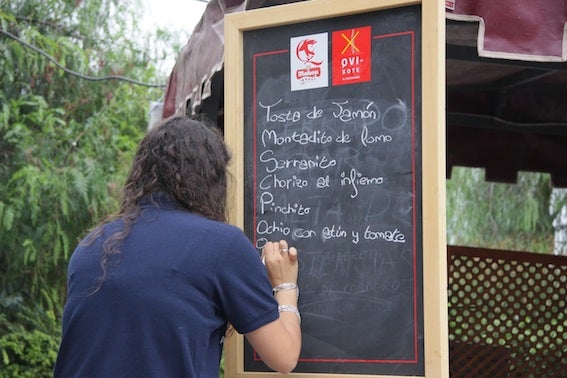 Mahou
QVI-
XOTE
Tosta de Jamón
Montadito de lomo
Serranito
Chorizo al infierno
Pinchito
Ochio con atún y tomate